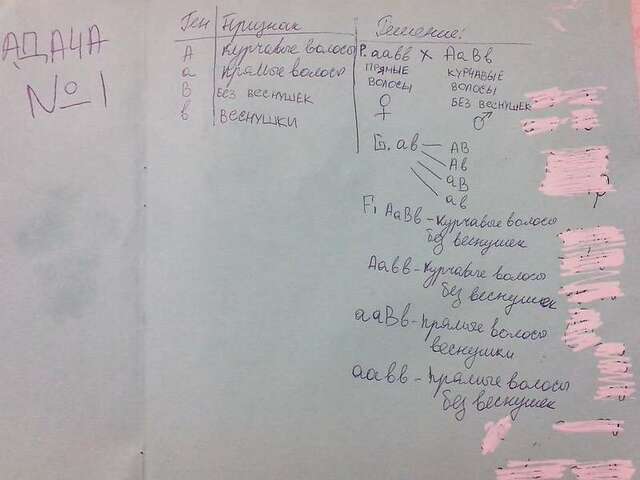 АДАЧА
№1
Ген Признак
А курчавые волосы
а прямые волосы
В без веснушек
в веснушки
Решение:
Р. аавв × АаВв
прямые курчавые
волосы волосы
без веснушек
♀ ♂
G. ав АВ
Ав
аВ
ав
F1 АаВв - курчавые волосы
без веснушек
Аавв - курчавые волосы
без веснушек
ааВв - прямые волосы
веснушки
аавв - прямые волосы
без веснушек